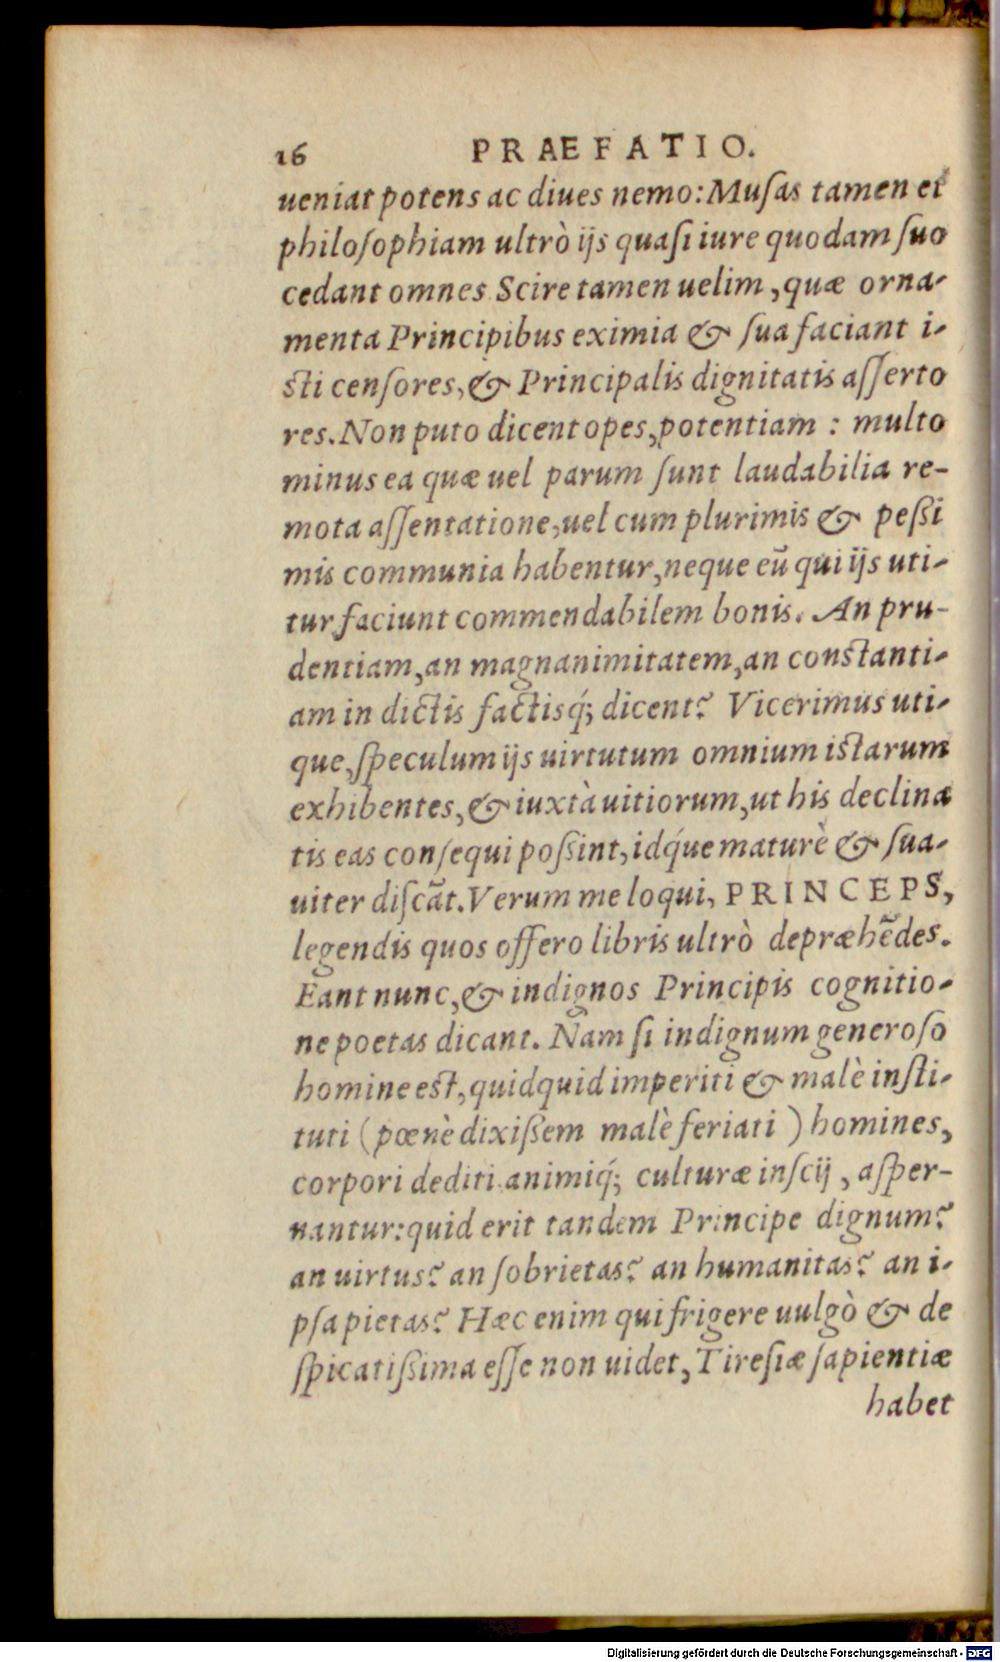 16 PRAEFATIO.
ueniat potens ac diues nemo: Muſas tamen et
philoſophiam ultrò ijs quaſi iure quodam ſuo
cedant omnes. Scire tamen uelim, quæ orna-
menta Principibus eximia & ſua faciant i-
ſti cenſores, & Principalis dignitatis aſſerto
res. Non puto dicent opes, potentiam : multo
minus ea quæ uel parum ſunt laudabilia re-
mota aſſentatione, uel cum plurimis & peßi
mis communia habentur, neque eũ qui ijs uti-
tur, faciunt commendabilem bonis. An pru-
dentiam, an magnanimitatem, an conſtanti-
am in dictis factisq́; dicent? Vicerimus uti-
que, ſpeculum ijs uirtutum omnium iſtarum
exhibentes, & iuxtà uitiorum, ut his declina
tis eas conſequi poßint, idq́ue maturè & ſua-
uiter diſcãt. Verum me loqui, PRINCEPS,
legendis quos offero libris ultrò depræhẽdes.
Eant nunc, & indignos Principis cognitio-
ne poetas dicant. Nam ſi indignum generoſo
homine eſt, quidquid imperiti & malè inſti-
tuti (pœnè dixißem malè feriati ) homines,
corpori dediti animiq́; culturæ inſcij , aſper-
nantur: quid erit tandem Principe dignum?
an uirtus? an ſobrietas? an humanitas? an i-
pſa pietas? Hæc enim qui frigere uulgò & de
ſpicatißima eſſe non uidet, Tireſiæ ſapientiæ
habet
Digitalisierung gefördert durch die Deutsche Forschungsgemeinschaft - DFG